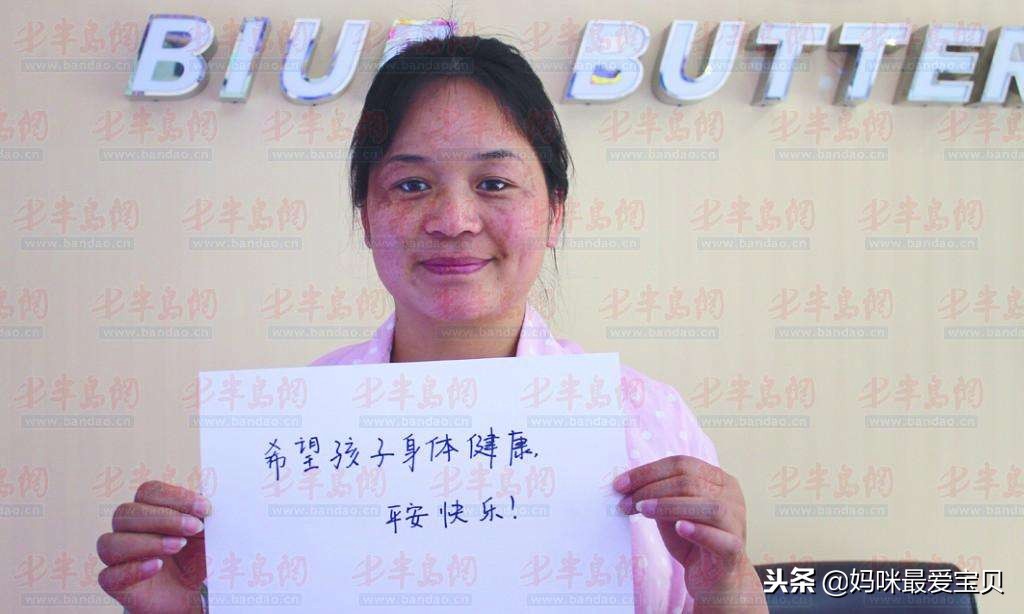 BIU BUTTER
希望孩子身体健康,
平安快乐!
半岛网
www.bandao.cn
头条 @妈咪最爱宝贝